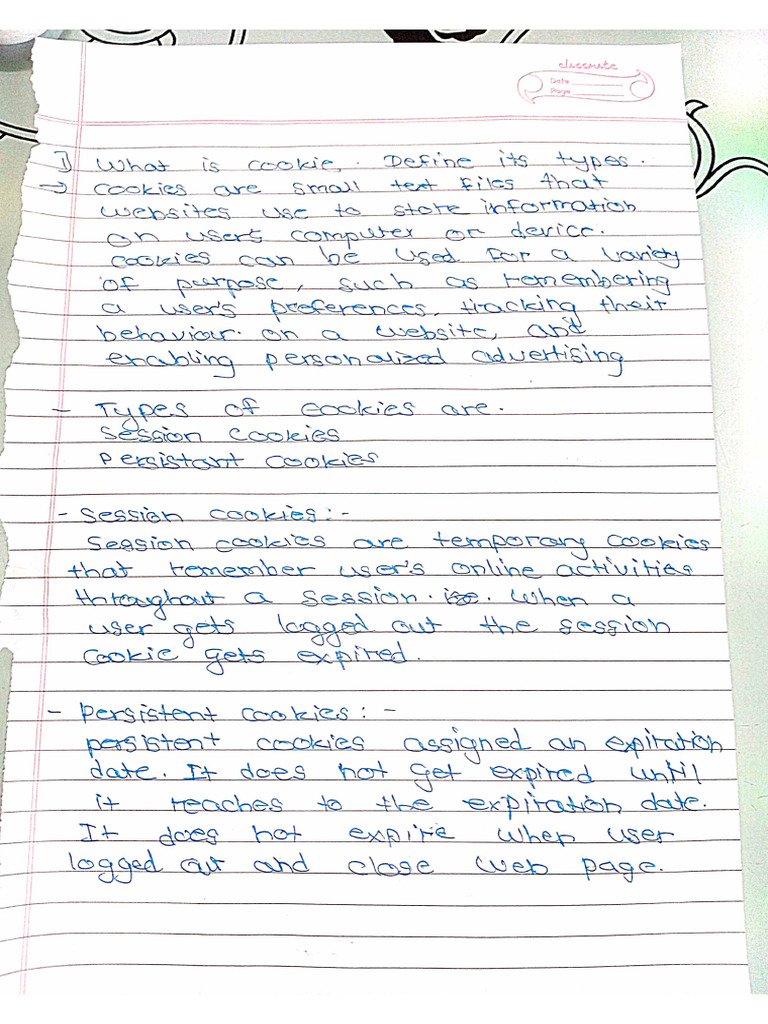 classmate
Date
Page
1) What is cookie. Define its types.
→ cookies are small text files that
websites use to store information
on user's computer or device.
cookies can be used for a variety
of purpose, such as remembering
a user's preferences, tracking their
behaviour on a website, and
enabling personalized advertising
- Types of cookies are.
session cookies
Persistant cookies
- Session cookies:-
Session cookies are temporary cookies
that remember user's online activities
throughout a session. When a
user gets logged out the session
cookie gets expired.
- Persistent cookies:-
persistent cookies assigned an expiration
date. It does not get expired until
it reaches to the expiration date.
It does not expire when user
logged out and close web page.